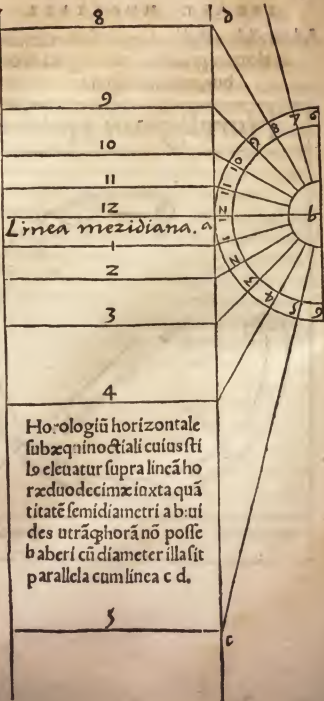 8 d
9
10
11
12
Linea meridiana. a
1
2
3
4
6
7
8
9
10
11
12
1
2
3
4
5
6
b
Horologiũ horizontale
ſubæquinoctiali cuius ſti
lꝰ eleuatur ſupra lineã ho
ræ duodecimæ iuxta quã
titatẽ ſemidiametri a b: ui
des utrãqꝫ horã nõ poſſe
haberi cũ diameter illa ſit
parallela cum linea c d.
5
c